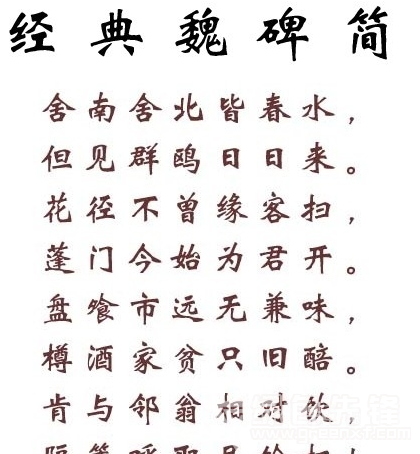 经典魏碑简
舍南舍北皆春水，
但见群鸥日日来。
花径不曾缘客扫，
蓬门今始为君开。
盘飧市远无兼味，
樽酒家贫只旧醅。
肯与邻翁相对饮，